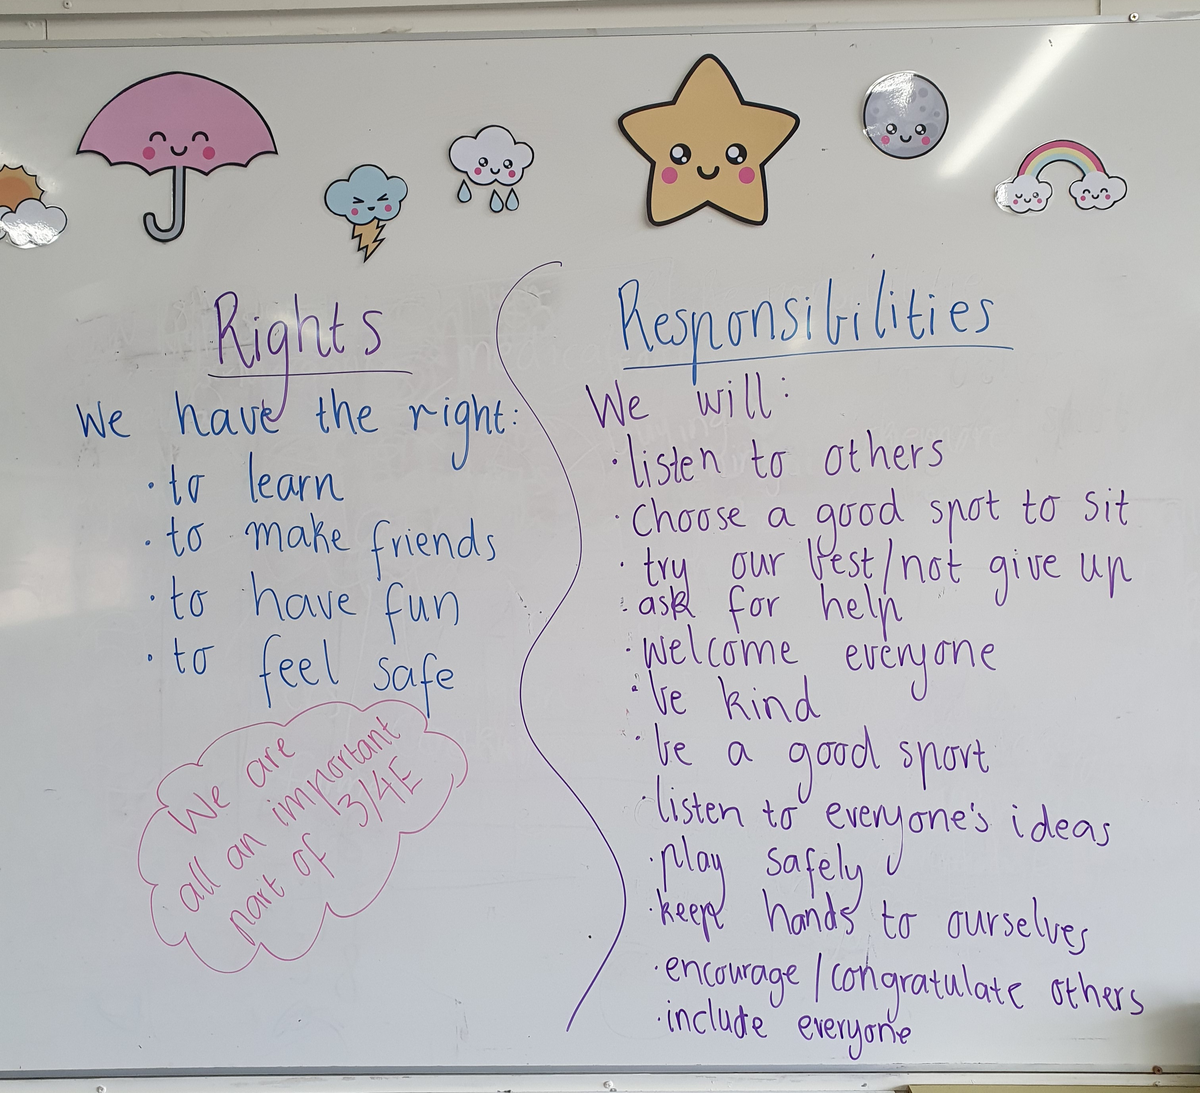 Rights
We have the right:
· to learn
· to make friends
· to have fun
· to feel safe
We are
all an important
part of 3/4E
Responsibilities
We will:
· listen to others
· choose a good spot to sit
· try our best/not give up
· ask for help
· welcome everyone
· be kind
· be a good sport
· listen to everyone's ideas
· play safely
· keep hands to ourselves
· encourage/congratulate others
· include everyone